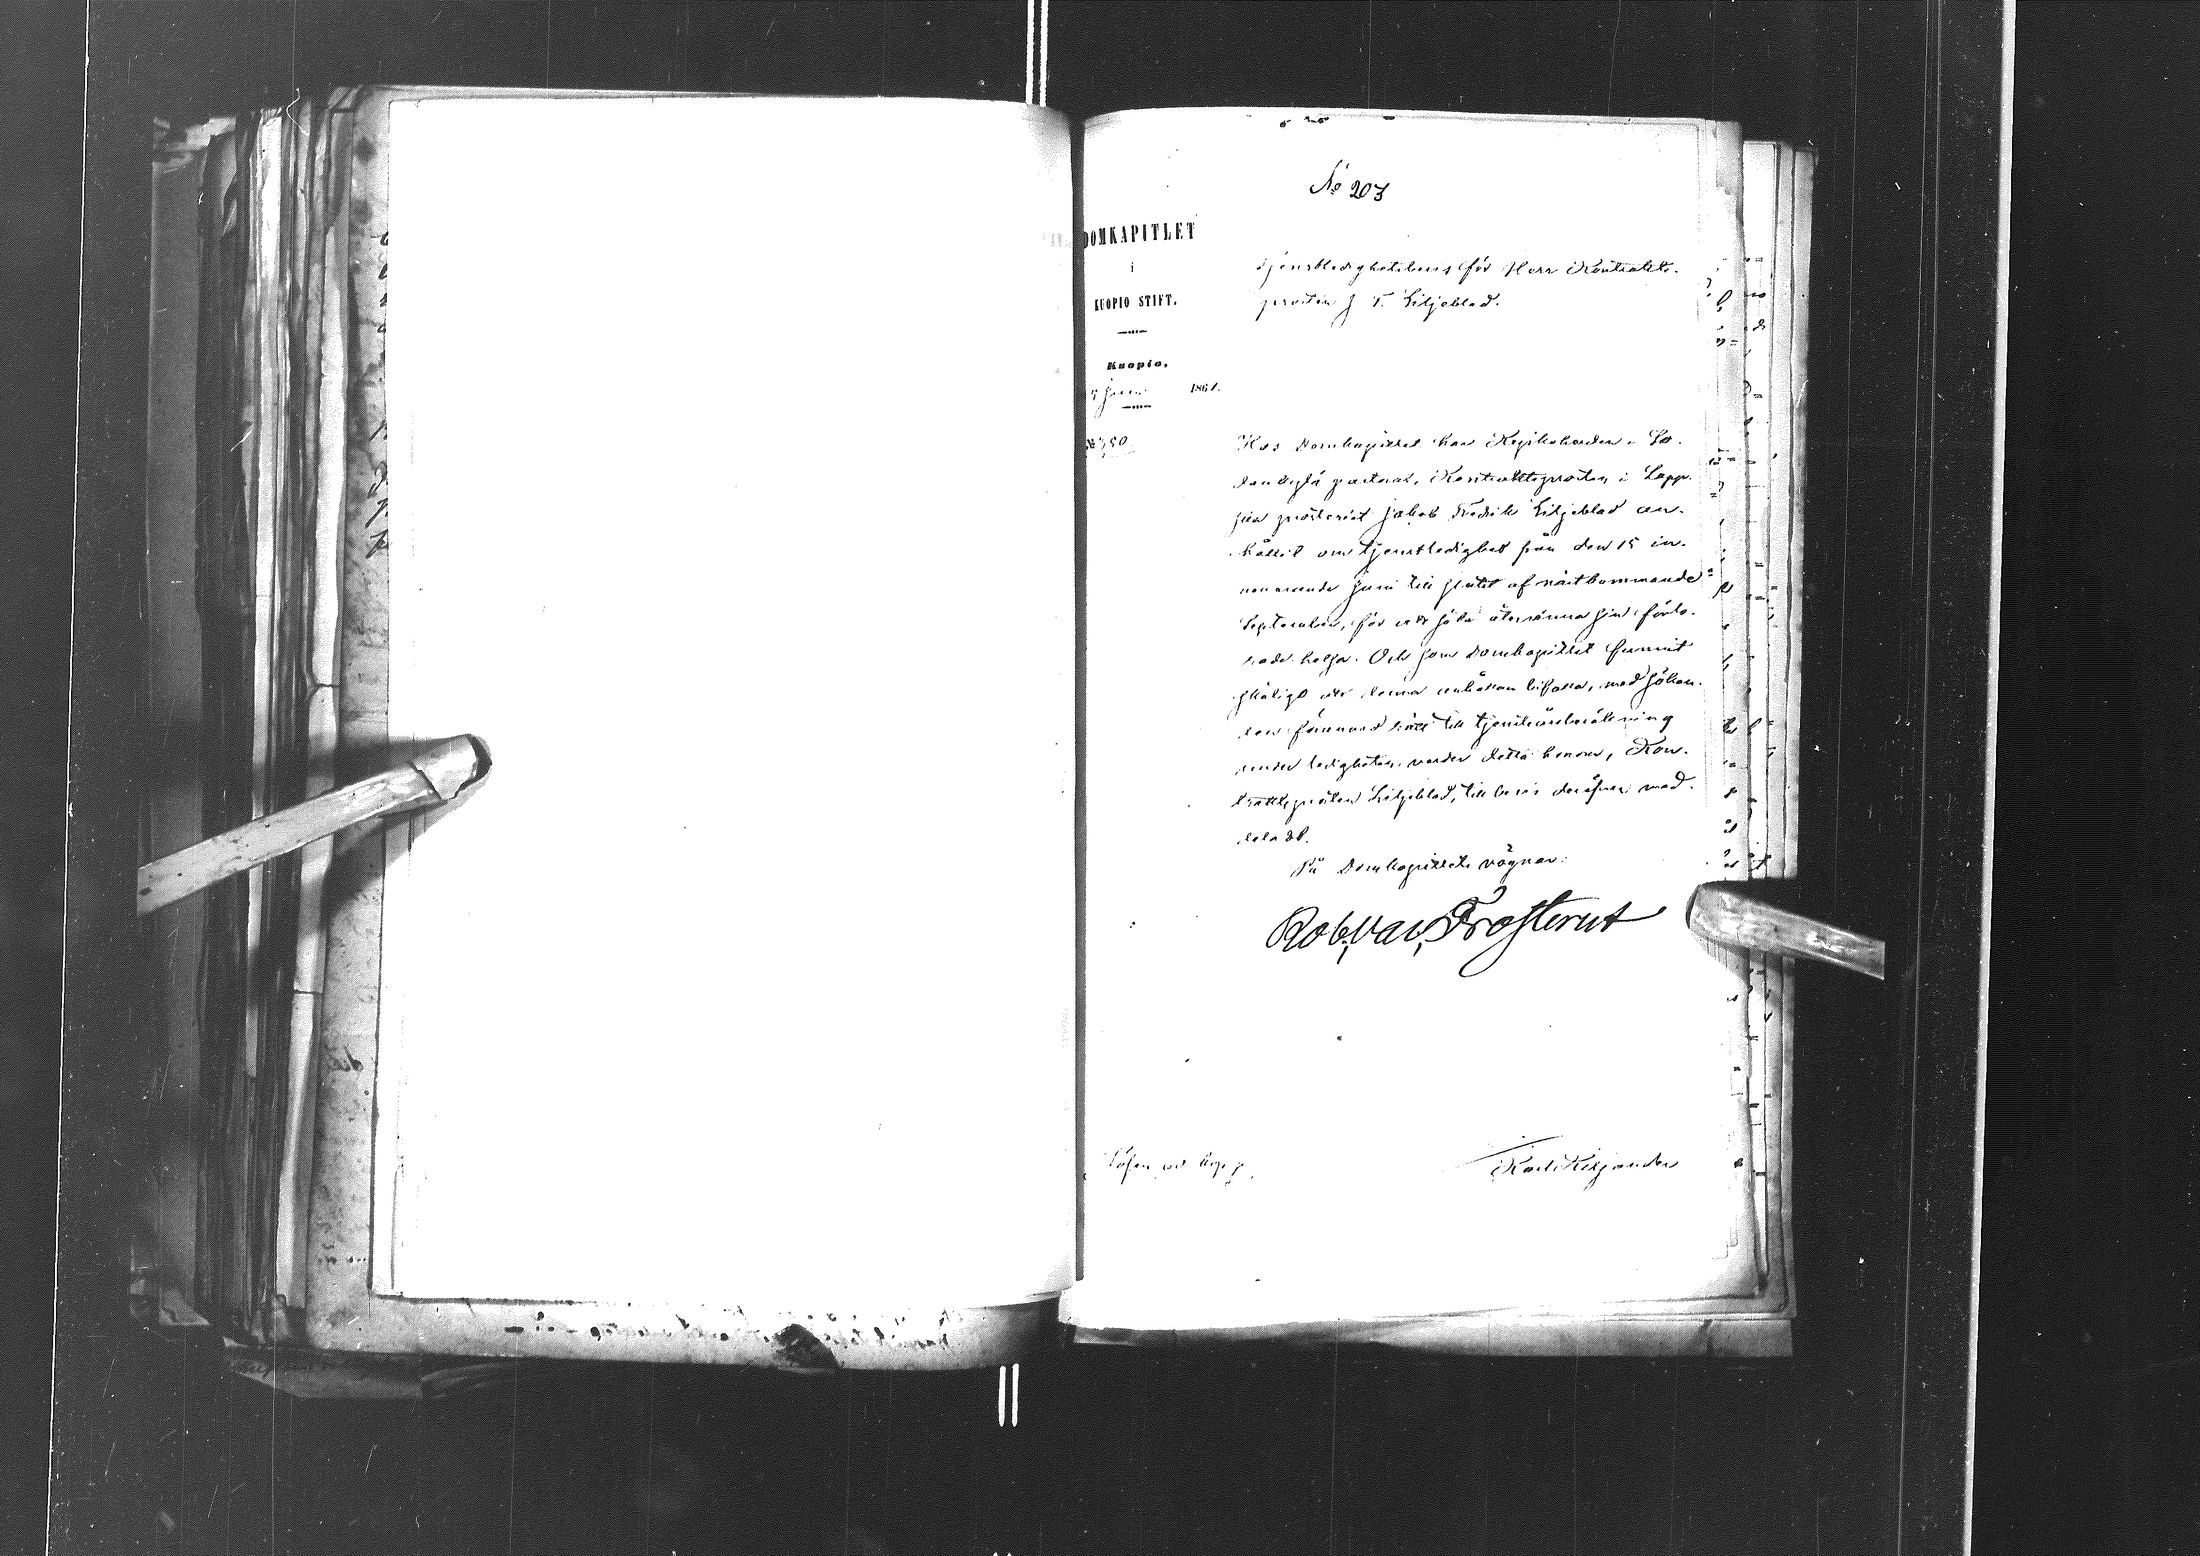 No 203
DOMKAPITLET
i
KUOPIO STIFT.
Kuopio,
Juni 1861.
No 750
Tjenstledighetsbevis för Herr Kontrakts-
prosten J F. Liljeblad.
Hos Domkapitlet har Kyrkoherden i So-
dankylä pastorat, Kontraktsprosten i Lapp-
ska prosteriet Jakob Fredrik Liljeblad an-
hållit om tjenstledighet från den 15 in-
nevarande Juni till slutet af nästkommande
September, för att söka återvinna sin förlo-
rade helsa. Och som Domkapitlet funnit
skäligt att denna anhållan bifalla, med sökan-
den förunnad rätt till tjensteårsberäkning
under ledigheten, varder detta honom, Kon-
traktsprosten Liljeblad, till bevis deröfver med-
deladt.
På Domkapitlets vägnar:
Rob. Val. Frosterus
Karl Kiljander